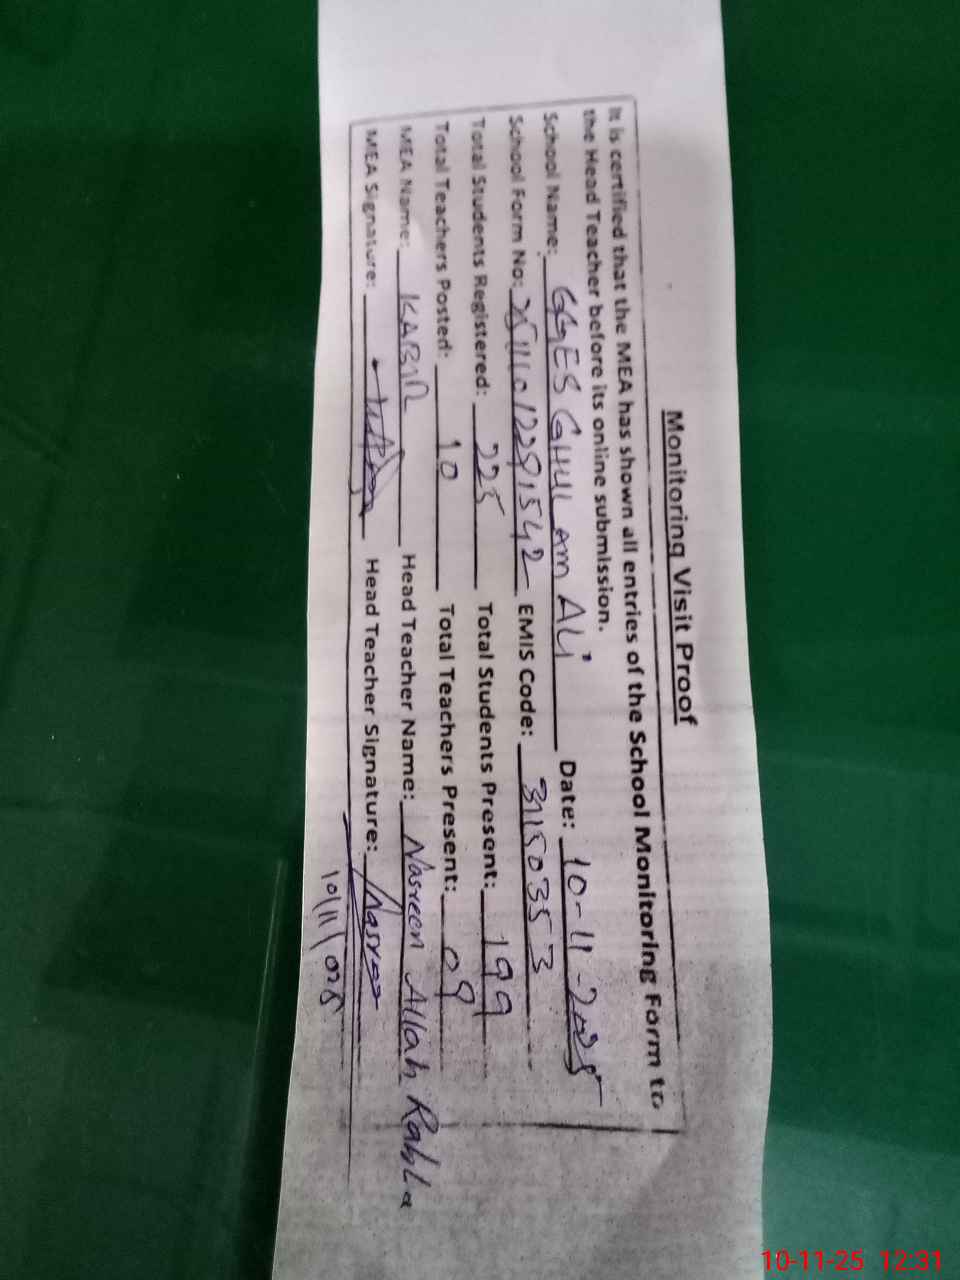 Monitoring Visit Proof
It is certified that the MEA has shown all entries of the School Monitoring Form to
the Head Teacher before its online submission.
School Name: GGES GHUL am ALi Date: 10-11-2025
School Form No: 25111012291542 EMIS Code: 31150353
Total Students Registered: 225 Total Students Present: 199
Total Teachers Posted: 10 Total Teachers Present: 09
MEA Name: KABIR Head Teacher Name: Nasreen Allah Rabba
MEA Signature: Head Teacher Signature: Nasreen
10/11/025
10-11-25 12:31